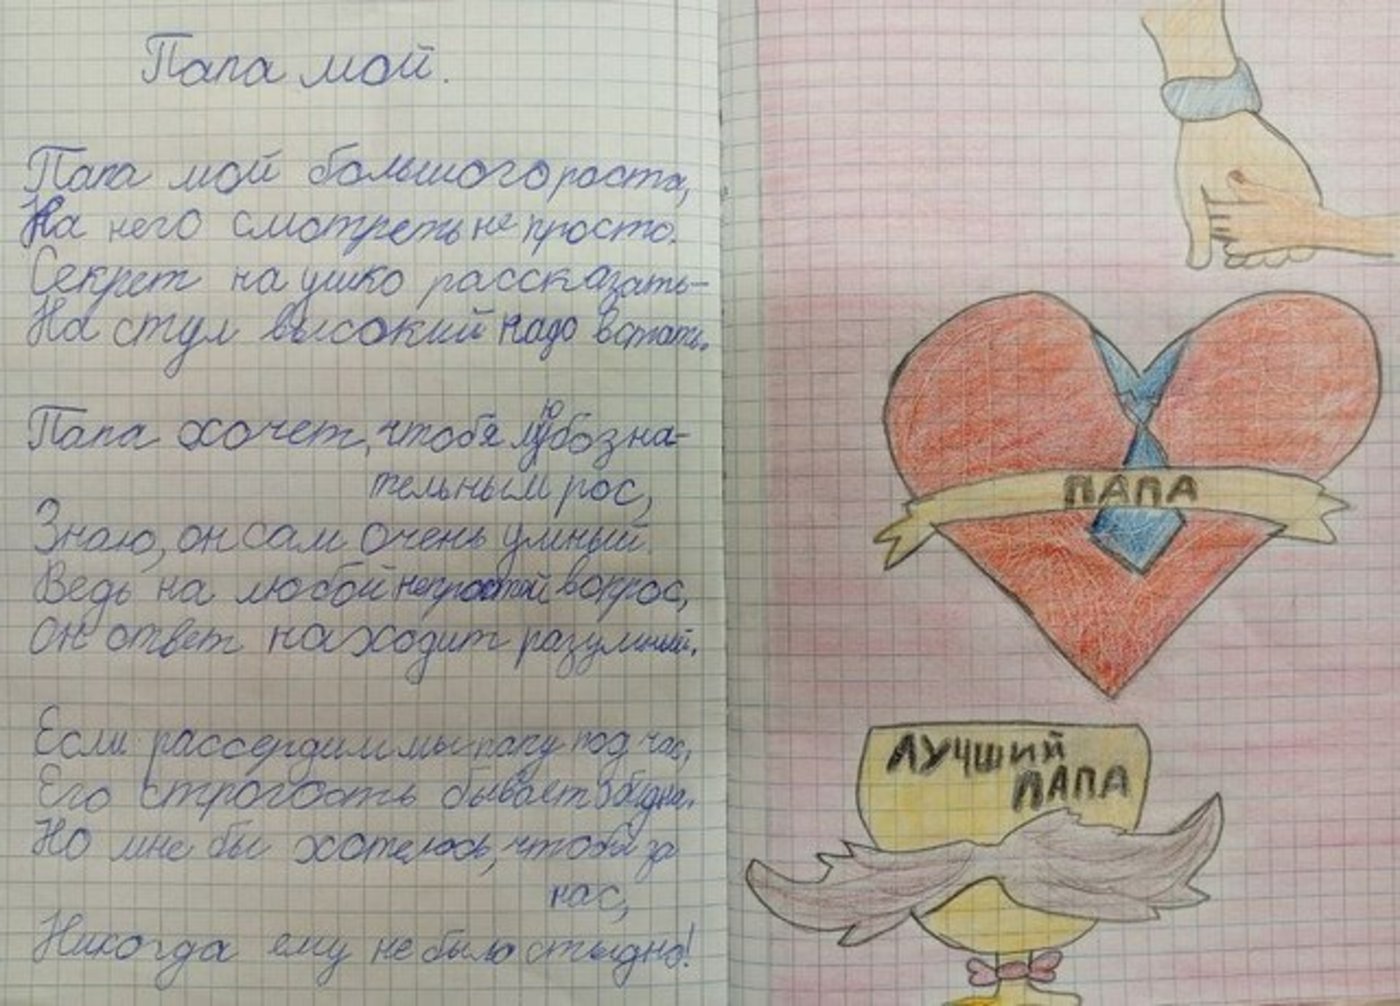 Папа мой.
Папа мой большого роста,
На него смотреть не просто.
Секрет на ушко рассказать-
На стул высокий надо встать.
Папа хочет, чтобя любозна-
тельным рос,
Знаю, он сам очень умный.
Ведь на любой непростой вопрос,
Он ответ находит разумный.
Если рассердим мы папу под час,
Его строгость бывает обидна.
Но мне бы хотелось, чтобы за
нас,
Никогда ему не было стыдно!
ПАПА
ЛУЧШИЙ
ПАПА